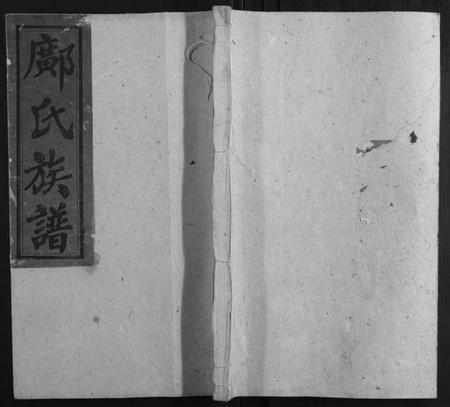 鄺氏族譜